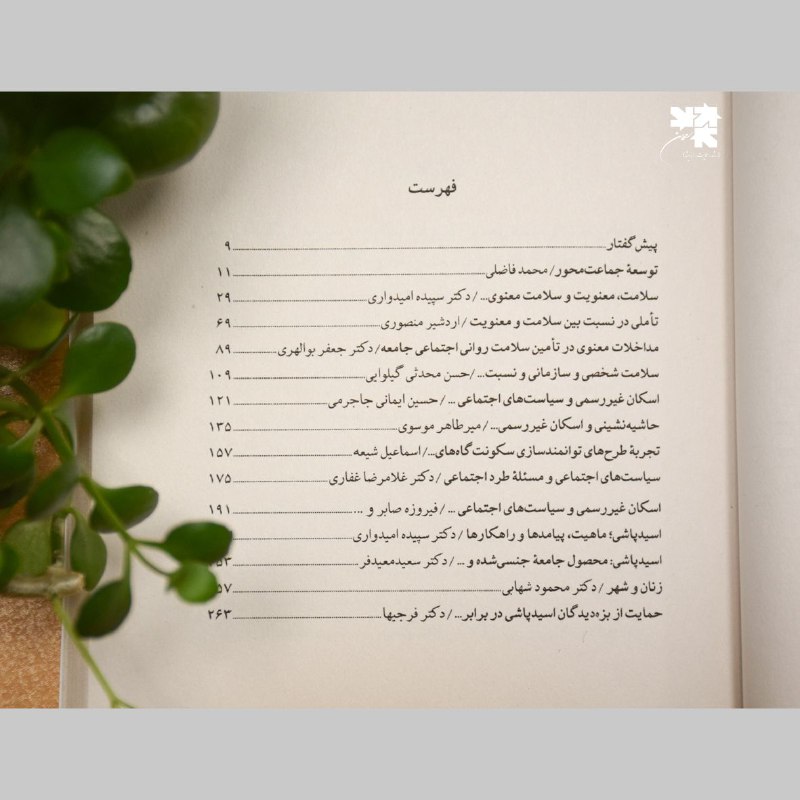 فهرست
پیش‌گفتار ۹
توسعهٔ جماعت‌محور/ محمد فاضلی ۱۱
سلامت، معنویت و سلامت معنوی... / دکتر سپیده امیدواری ۲۹
تأملی در نسبت بین سلامت و معنویت / اردشیر منصوری ۶۹
مداخلات معنوی در تأمین سلامت روانی اجتماعی جامعه/ دکتر جعفر بوالهری ۸۹
سلامت شخصی و سازمانی و نسبت.../ حسن محدثی گیلوایی ۱۰۹
اسکان غیررسمی و سیاست‌های اجتماعی ... / حسین ایمانی جاجرمی ۱۲۱
حاشیه‌نشینی و اسکان غیررسمی.../ میرطاهر موسوی ۱۳۵
تجربهٔ طرح‌های توانمندسازی سکونت‌گاه‌های.../ اسماعیل شیعه ۱۵۷
سیاست‌های اجتماعی و مسئلهٔ طرد اجتماعی / دکتر غلامرضا غفاری ۱۷۵
اسکان غیررسمی و سیاست‌های اجتماعی ... / فیروزه صابر و ... ۱۹۱
اسیدپاشی؛ ماهیت، پیامدها و راهکارها / دکتر سپیده امیدواری
اسیدپاشی: محصول جامعهٔ جنسی‌شده و ... / دکتر سعید معیدفر
زنان و شهر / دکتر محمود شهابی
حمایت از بزه‌دیدگان اسیدپاشی در برابر... / دکتر فرجیها ۲۶۳